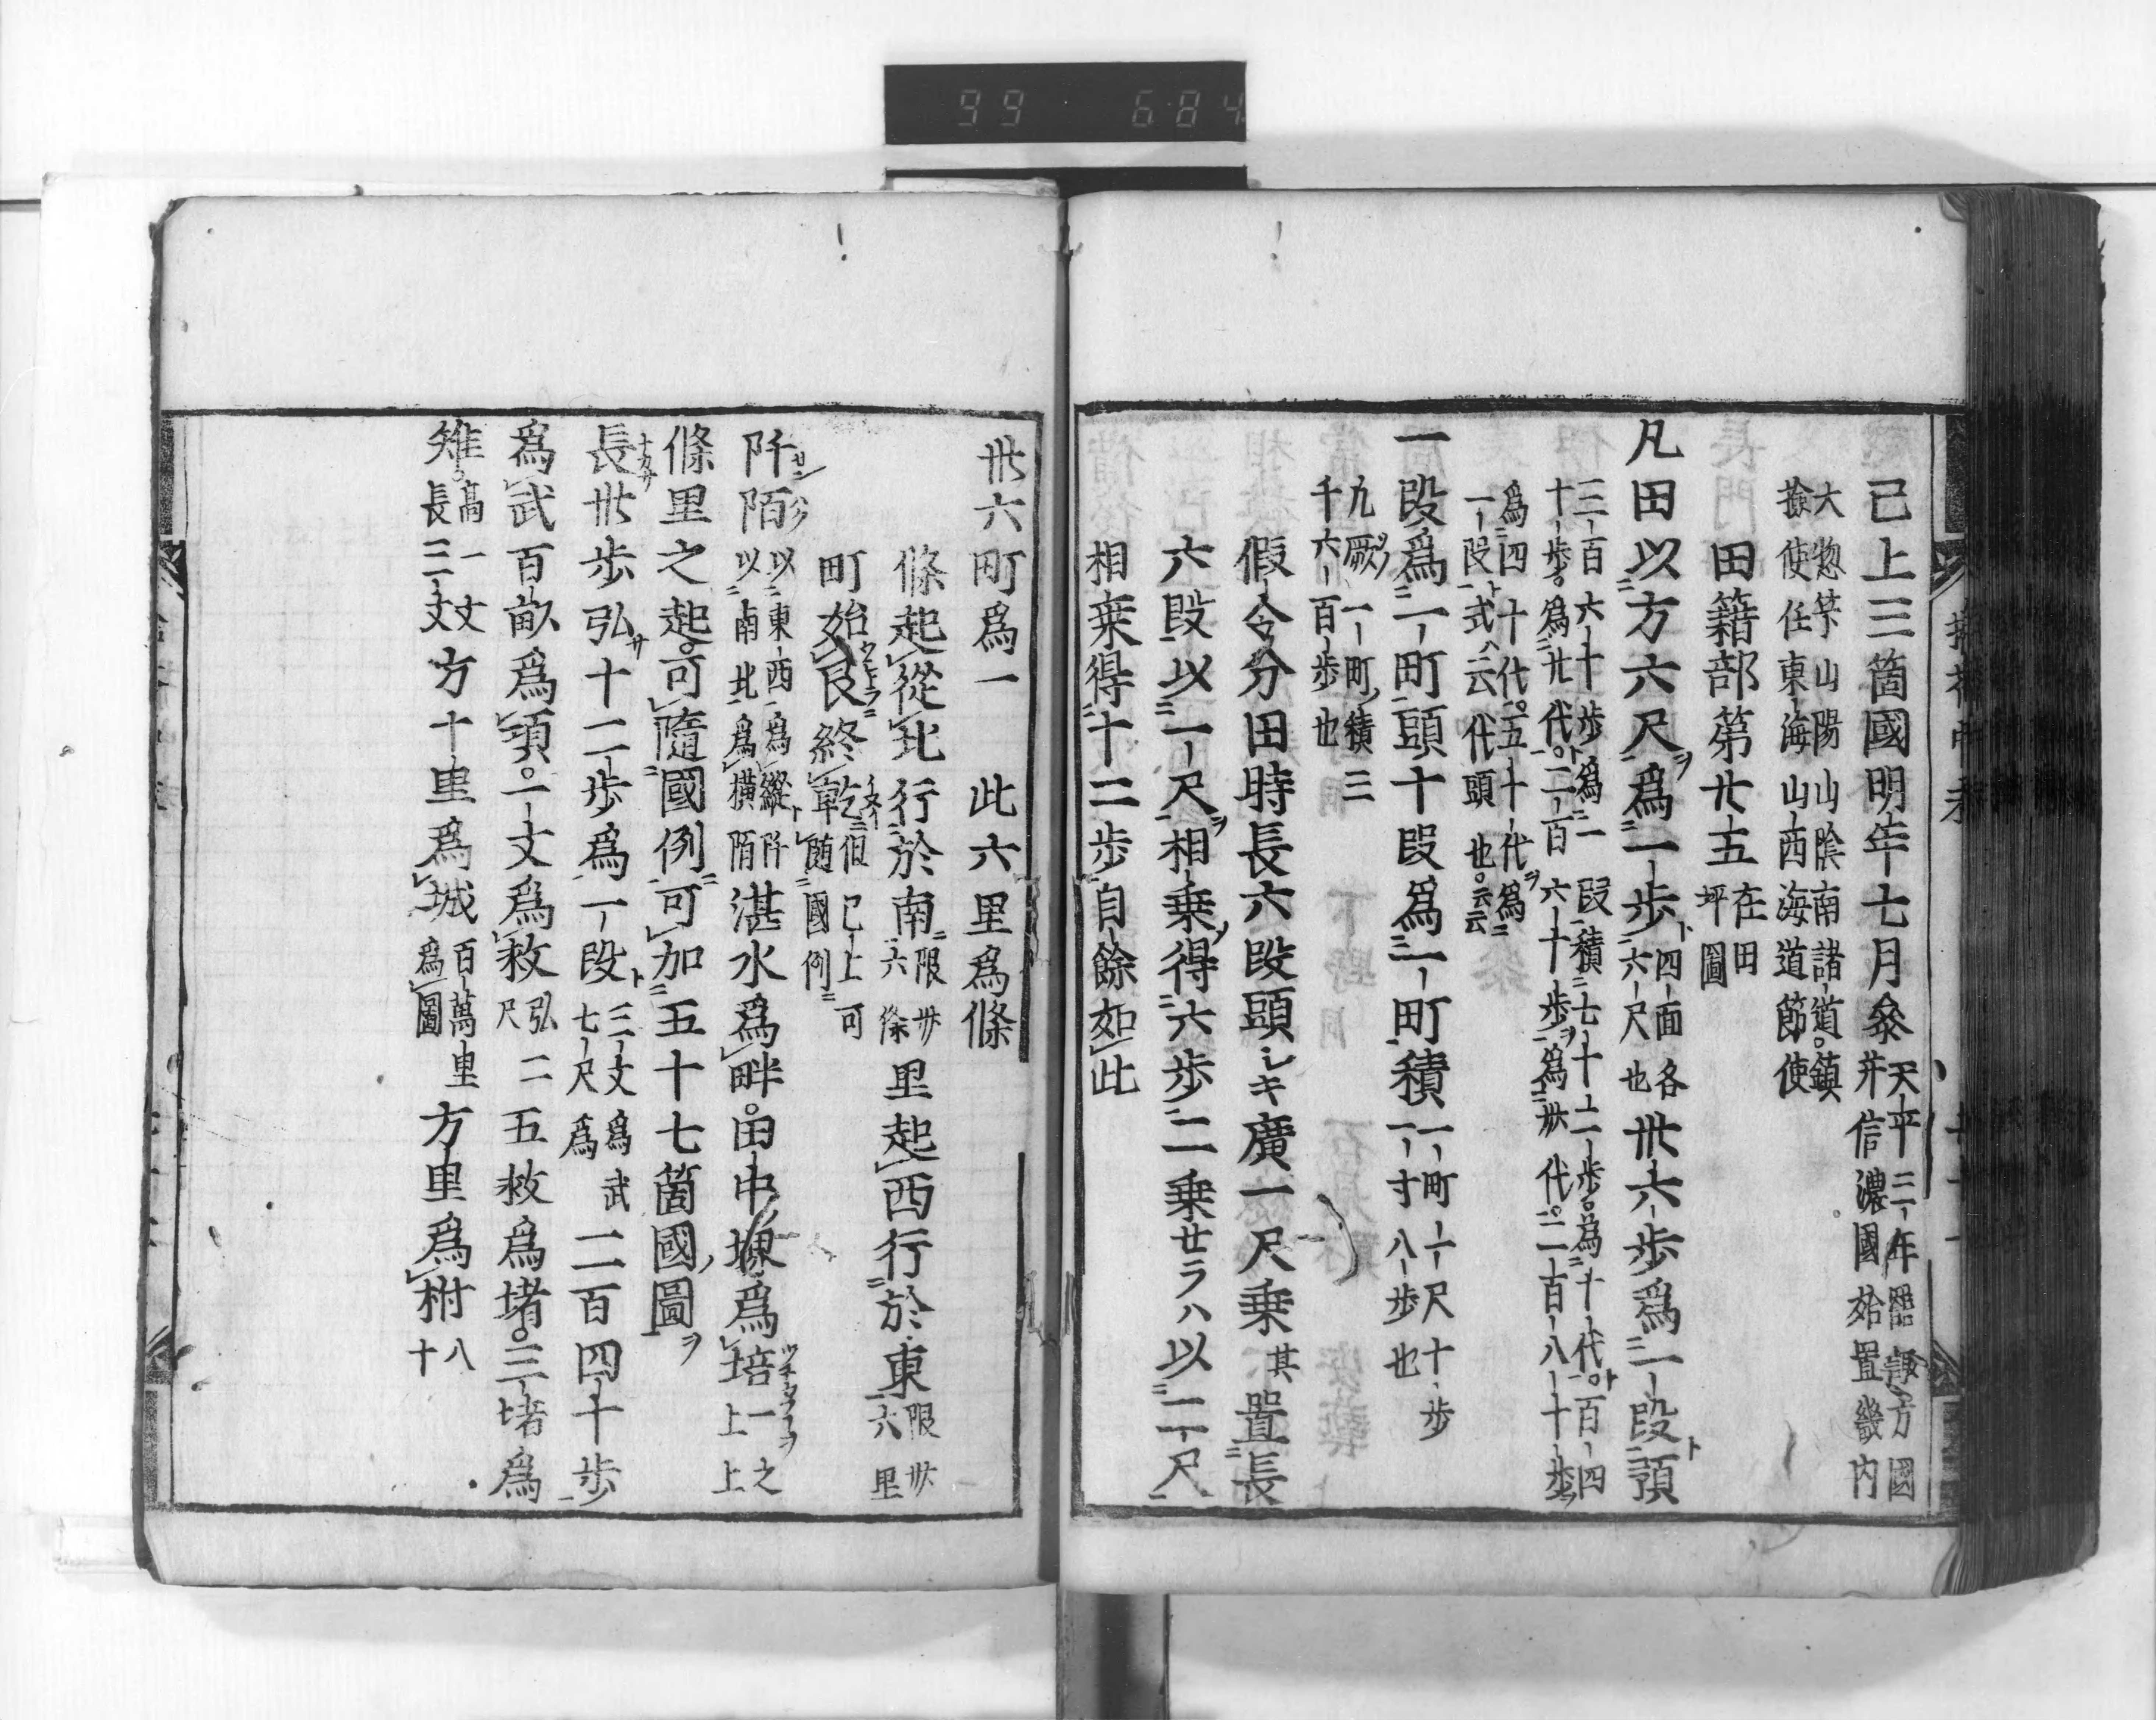 99 684
己上三箇國明年七月叅天平三年諏方國
并信濃國始置畿内
大惣管山陽山陰南諸道鎮
撿使任東海山西海道節使
田籍部第廿五在田
坪圖
凡田以方六尺ヲ爲一歩ト四面各
六尺也卅六歩爲一段ト預
三百六十歩ト爲一段積七十二歩爲十代ト百四
十歩爲廿代ト二百六十歩ヲ爲卅代二百八十歩ヲ
爲四十代五十代ヲ爲
一段ト式ハ云代頭也云云
一段爲一町頭十段爲一町積一町一尺十歩
一寸八歩也
九厥ソノ一町ノ積三
千六百歩也
假令分田時長六段頭シキ廣一尺乗其置長
六段以一尺ヲ相乗ノ得六歩二乗セラハ以二尺
相乗得十二歩自餘如此
卅六町爲一 此六里爲條
條起從北行於南限卅
六條里起西行於東限卅
六里
町始艮ウシトラ終乾イヌイ但己上可
隨國例
阡陌以東西爲縱ト阡
以南北爲横陌湛水爲畔田中堜爲培一之
上上
條里之起可隨國例可加五十七箇國ノ圖ヲ
長ナカサ卅歩弘サ十二歩爲一段ト三丈爲武
七尺爲二百四十歩
爲武百畝爲頃一丈爲救弘二
尺五救爲堵三堵爲
雉高一丈
長三丈方十里爲城百萬里
爲圖方里爲柎八
十